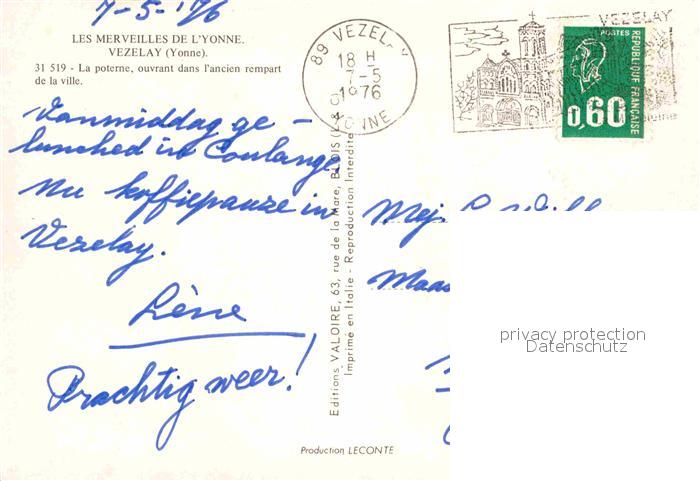 7-5-'76
LES MERVEILLES DE L'YONNE.
VEZELAY (Yonne).
31 519 - La poterne, ouvrant dans l'ancien rempart
de la ville.
Vanmiddag ge-
lunched in Coulange.
Nu koffiepauze in
Vezelay.
Lène
Prachtig weer!
Editions VALOIRE, 63, rue de la Mare, BLOIS
Imprimé en Italie - Reproduction Interdite
Production LECONTE
89 VEZELAY
18 H
7-5
1976
YONNE
VEZELAY
POSTES
REPUBLIQUE FRANÇAISE
0,60
Mej.
Maas
privacy protection
Datenschutz